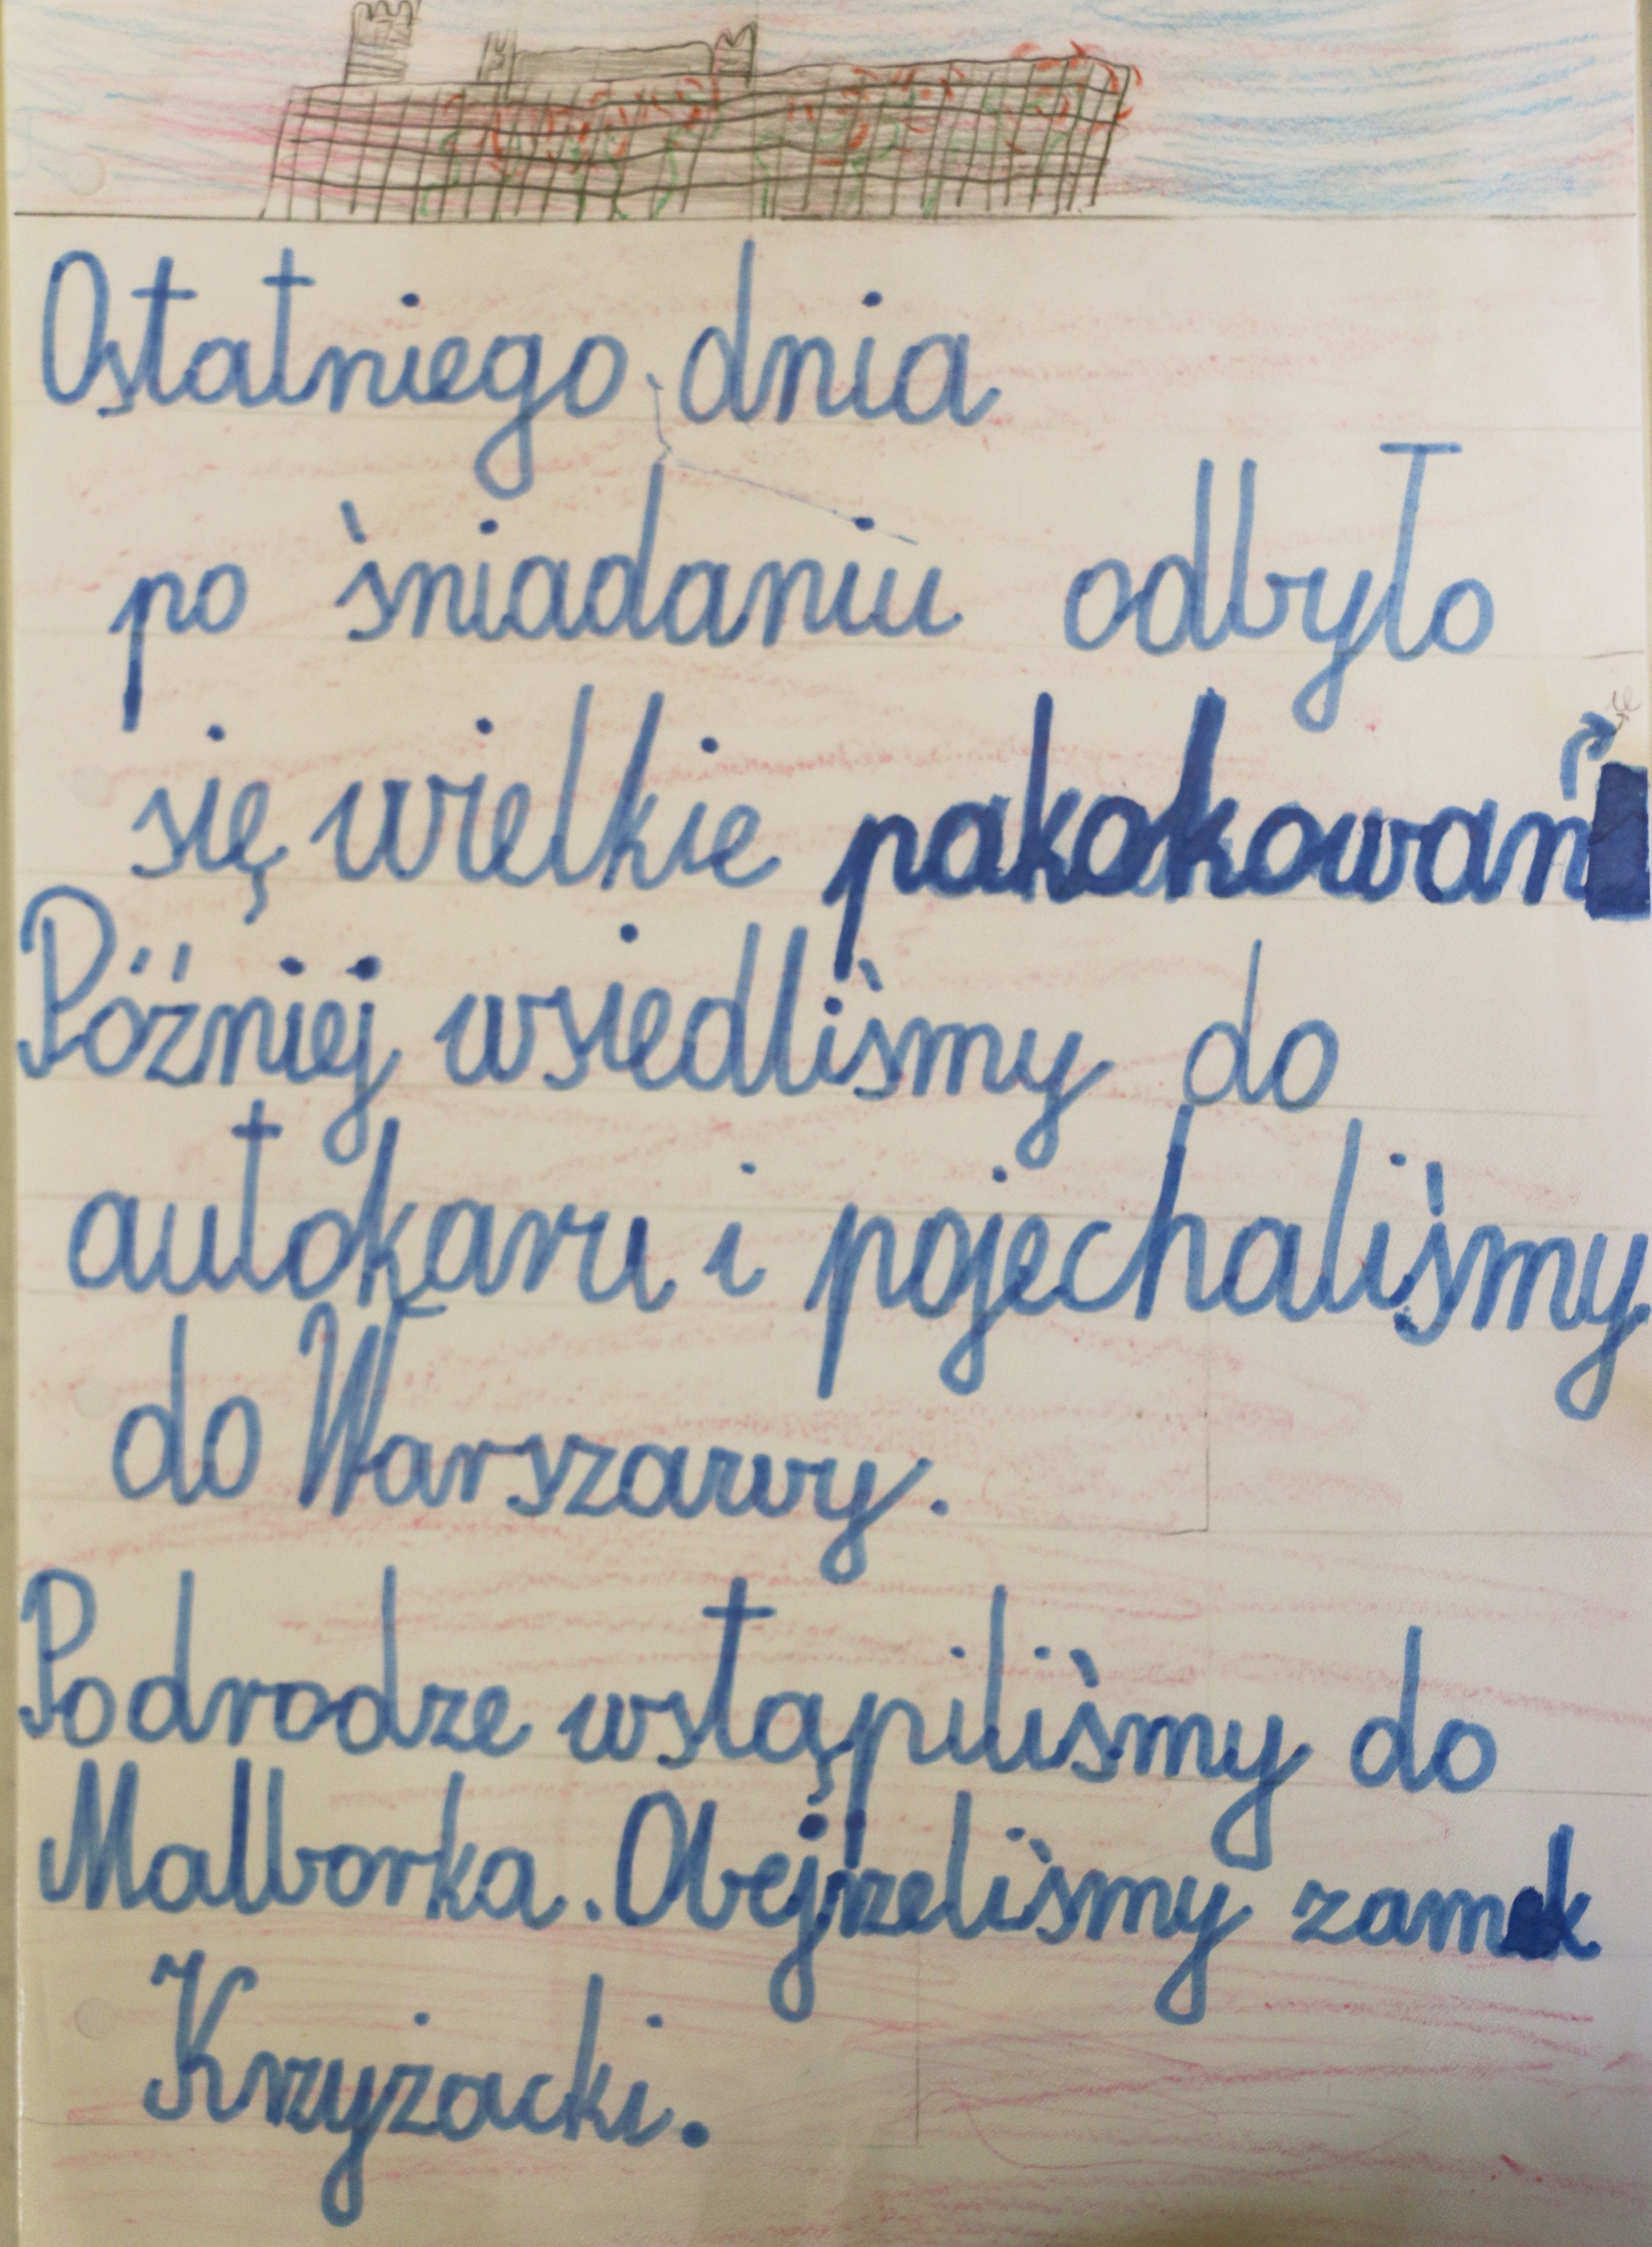 Ostatniego dnia
po śniadaniu odbyło
się wielkie pakokowan
Później wsiedliśmy do
autokaru i pojechaliśmy
do Warszawy.
Podrodze wstąpiliśmy do
Malborka. Obejrzeliśmy zamek
Krzyżacki.